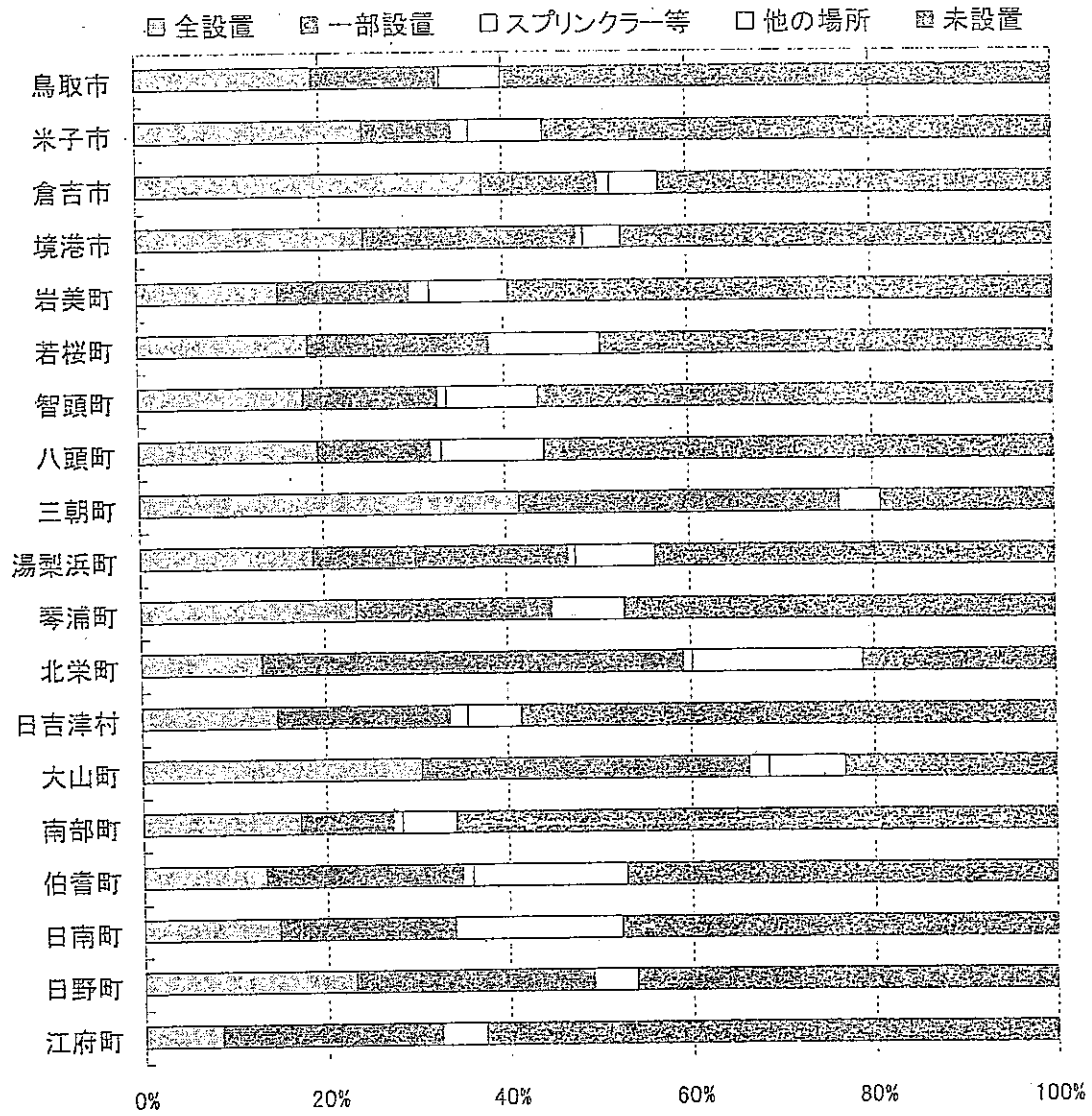 全設置 一部設置 スプリンクラー等 他の場所 未設置
鳥取市
米子市
倉吉市
境港市
岩美町
若桜町
智頭町
八頭町
三朝町
湯梨浜町
琴浦町
北栄町
日吉津村
大山町
南部町
伯耆町
日南町
日野町
江府町
0% 20% 40% 60% 80% 100%